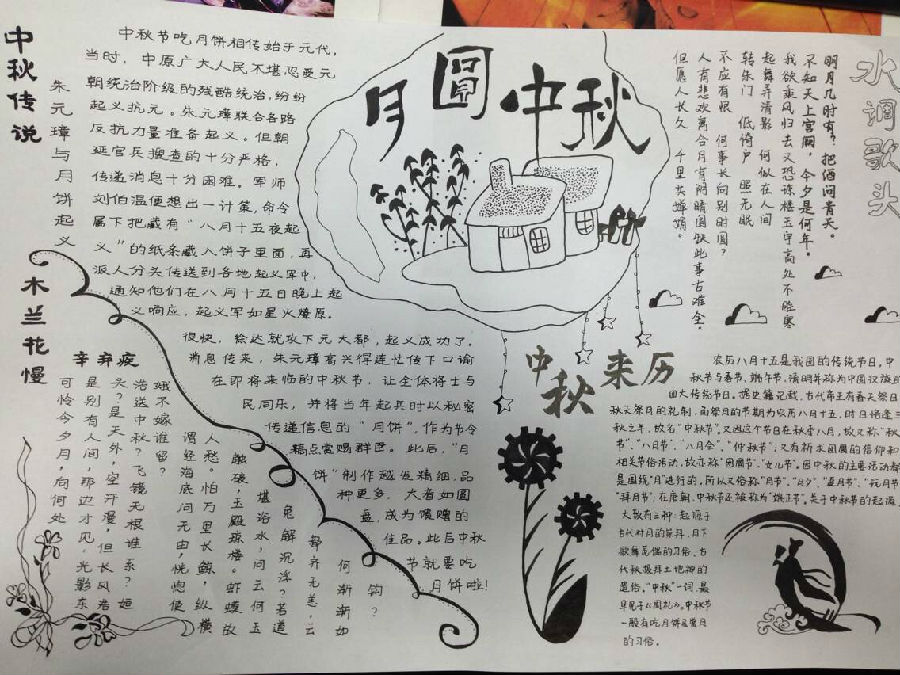 中秋传说
朱元璋与月饼起义
中秋节吃月饼相传始于元代，
当时，中原广大人民不堪忍受元
朝统治阶级的残酷统治，纷纷
起义抗元。朱元璋联合各路
反抗力量准备起义。但朝
延官兵搜查的十分严格，
传递消息十分困难。军师
刘伯温便想出一计策，命令
属下把藏有“八月十五夜起
义”的纸条藏入饼子里面，再
派人分头传送到各地起义军中，
通知他们在八月十五日晚上起
义响应，起义军如星火燎原。
很快，徐达就攻下元大都，起义成功了。
消息传来，朱元璋高兴得连忙传下口谕
在即将来临的中秋节，让全体将士与
民同乐，并将当年起兵时以秘密
传递信息的“月饼”，作为节令
糕点赏赐群臣。此后，“月
饼”制作越发精细，品
种更多，大者如圆
盘，成为馈赠的
佳品。此后中秋
节就要吃
月饼啦！
月圆中秋
水调歌头
明月几时有？把酒问青天。
不知天上宫阙，今夕是何年。
我欲乘风归去又恐琼楼玉宇高处不胜寒
起舞弄清影 何似在人间
转朱门 低绮户 照无眠
不应有恨 何事长向别时圆？
人有悲欢离合月有阴晴圆缺此事古难全。
但愿人长久 千里共婵娟。
木兰花慢
辛弃疾
可怜今夕月，向何处
是别有人间，那边才见，光影东
头？是天外，空汗漫，但长风浩
浩送中秋？飞镜无根谁系？姮
娥不嫁谁留？
谓经海底问无由，恍惚使
人愁。怕万里长鲸，纵横
触破，玉殿琼楼。虾蟆故
堪浴水，问云何玉
兔解沉浮？若道
都齐无恙，云
何渐渐如
钩？
中秋来历
农历八月十五是我国的传统节日，中
秋节与春节、端午节、清明并称为中国汉族的
四大传统节日。据史籍记载，古代帝王有春天祭日
秋天祭月的礼制，而祭月的节期为农历八月十五，时日恰逢三
秋之半，故名“中秋节”，又因这个节日在秋季八月，故又称“秋
节”、“八月节”、“八月会”、“仲秋节”，又有祈求团圆的信仰和
相关节俗活动，故亦称“团圆节”、“女儿节”。因中秋的主要活动都
是围绕“月”进行的，所以又俗称“月节”、“月夕”、“追月节”、“玩月节”
“拜月节”。在唐朝，中秋节还被称为“端正节”。关于中秋节的起源，
大致有三种：起源于
古代对月的崇拜、月下
歌舞觅偶的习俗、古
代秋报拜土地神的
遗俗。“中秋”一词，最
早见于《周礼》。中秋节
一般有吃月饼及赏月
的习俗。